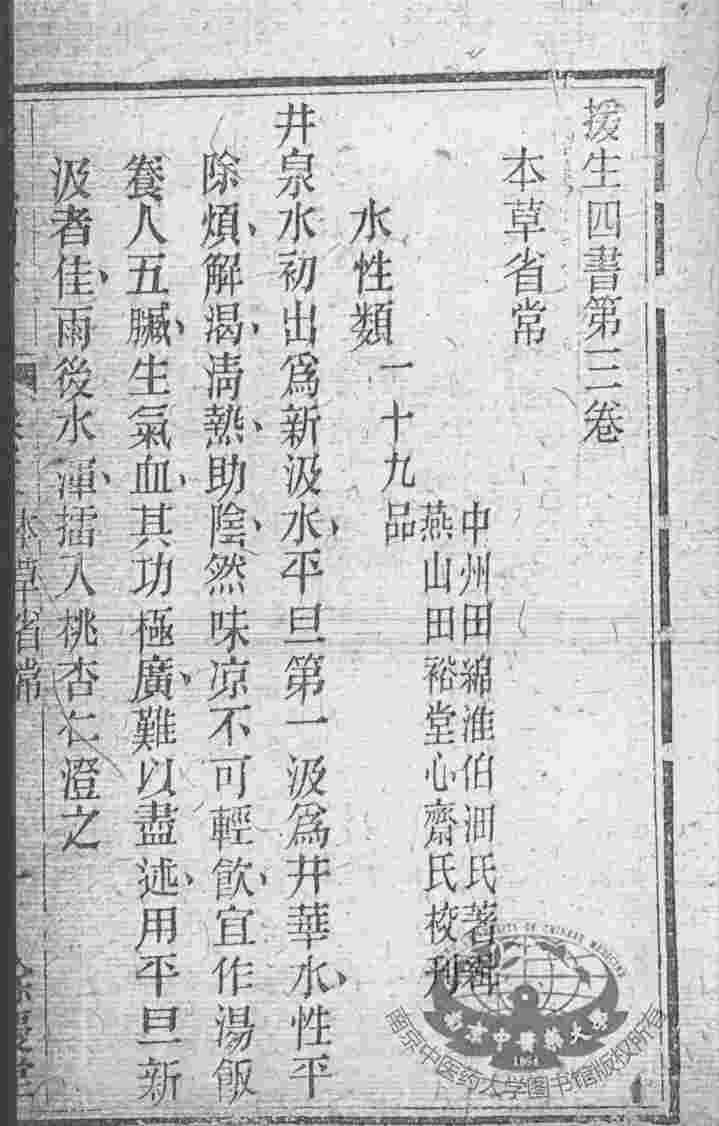 援生四書第三卷
本草省常
中州田綿淮伯洄氏著輯
燕山田裕堂心齋氏校刋
水性類
一十九品
井泉水初出爲新汲水、平旦第一汲爲井華水、性平
除煩、解渴、淸熱、助陰、然味凉不可輕飲、宜作湯飯
養人五臟、生氣血、其功極廣、難以盡述、用平旦新
汲者佳、雨後水渾、擂入桃杏仁澄之
本草省常
南京中醫藥大學
1954
南京中医药大学图书馆版权所有